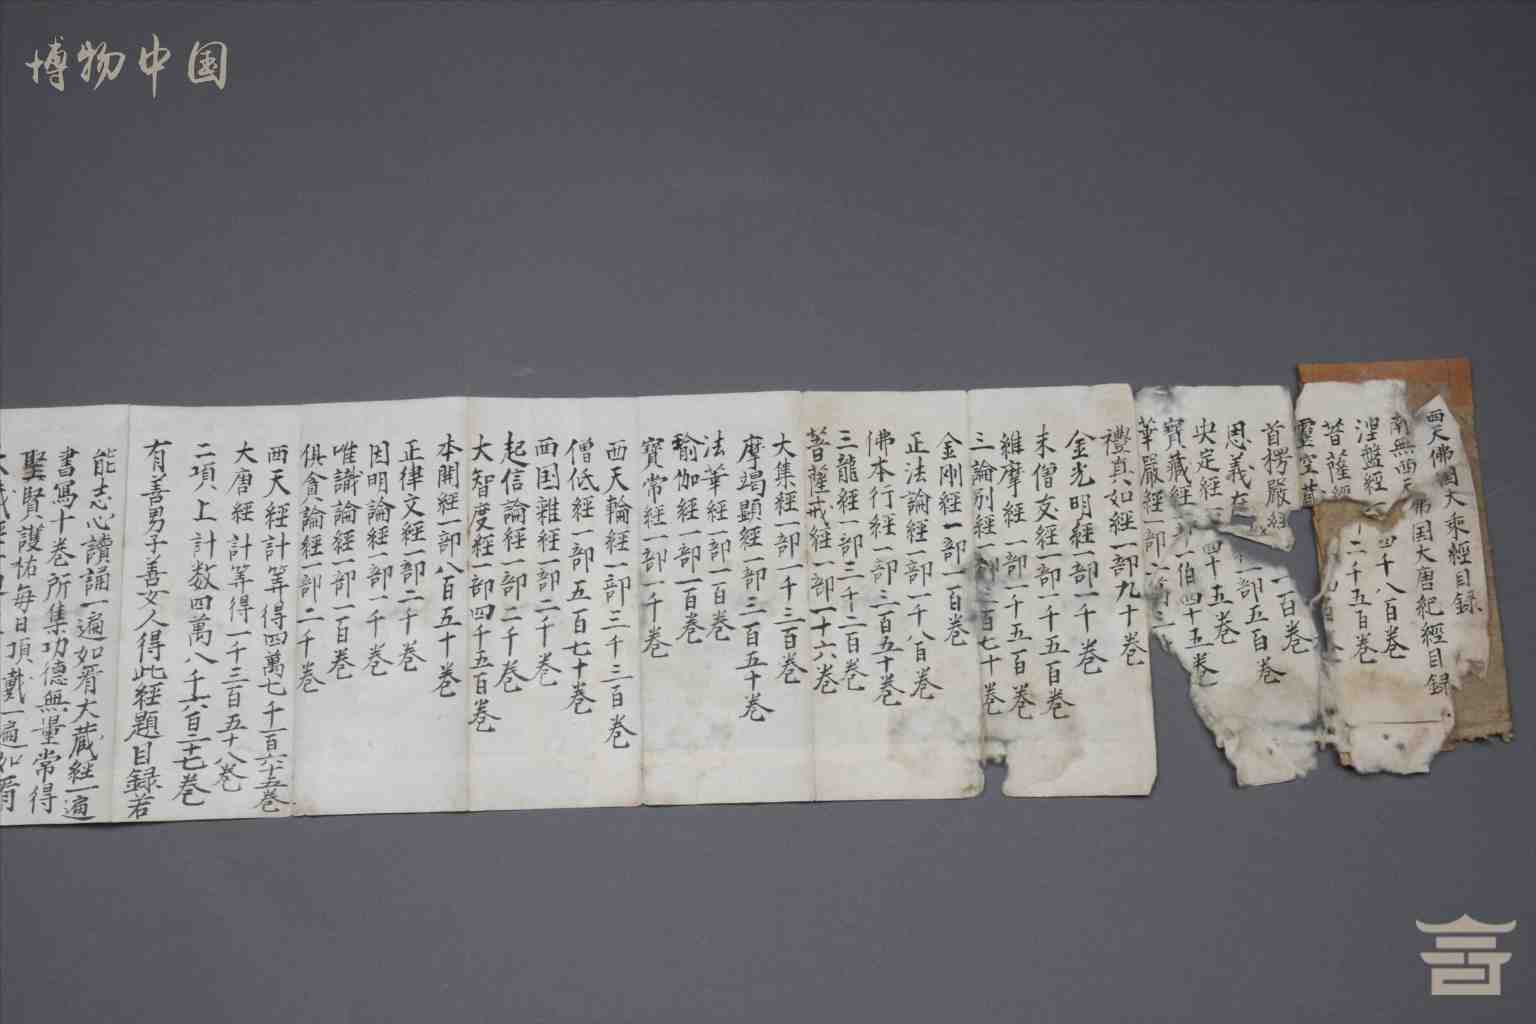 博物中国
西天佛國大乘經目録
南無西天佛国大唐纪經目録
涅盤經一 四千八百巻
菩薩經 二千五百巻
靈空
首楞嚴經 一百巻
恩義在 一部五百巻
央定經 四十五巻
寳藏經 一伯四十五巻
華嚴經一部六百
禮真如經一部九十巻
金光明經一部一千巻
末僧文經一部一千五百巻
維摩經一部一千五百巻
三論別經一部三百七十巻
金剛經一部一百巻
正法論經一部一千八百巻
佛本行經一部三百五十巻
三龍經一部三千二百巻
菩薩戒經一部一十六巻
大集經一部一千三百巻
摩竭顕經一部三百五十巻
法華經一部一百巻
瑜伽經一部一百巻
寳常經一部一千巻
西天輪經一部三千三百巻
僧低經一部五百七十巻
西国雜經一部二千巻
起信論經一部二千巻
大智度經一部四千五百巻
本開經一部八百五十巻
正律文經一部二千巻
因明論經一部一千巻
唯識論經一部一百巻
俱貪論經一部二千巻
西天經計等得四萬七千一百六十五巻
大唐經計等得一千三百五十八巻
二項上計数四萬八千六百二十七巻
有善男子善女人得此經題目録若
能志心讀誦一遍如看大蔵經一遍
書寫十巻所集功德無量常得
聖賢護祐每日頂戴一遍如看